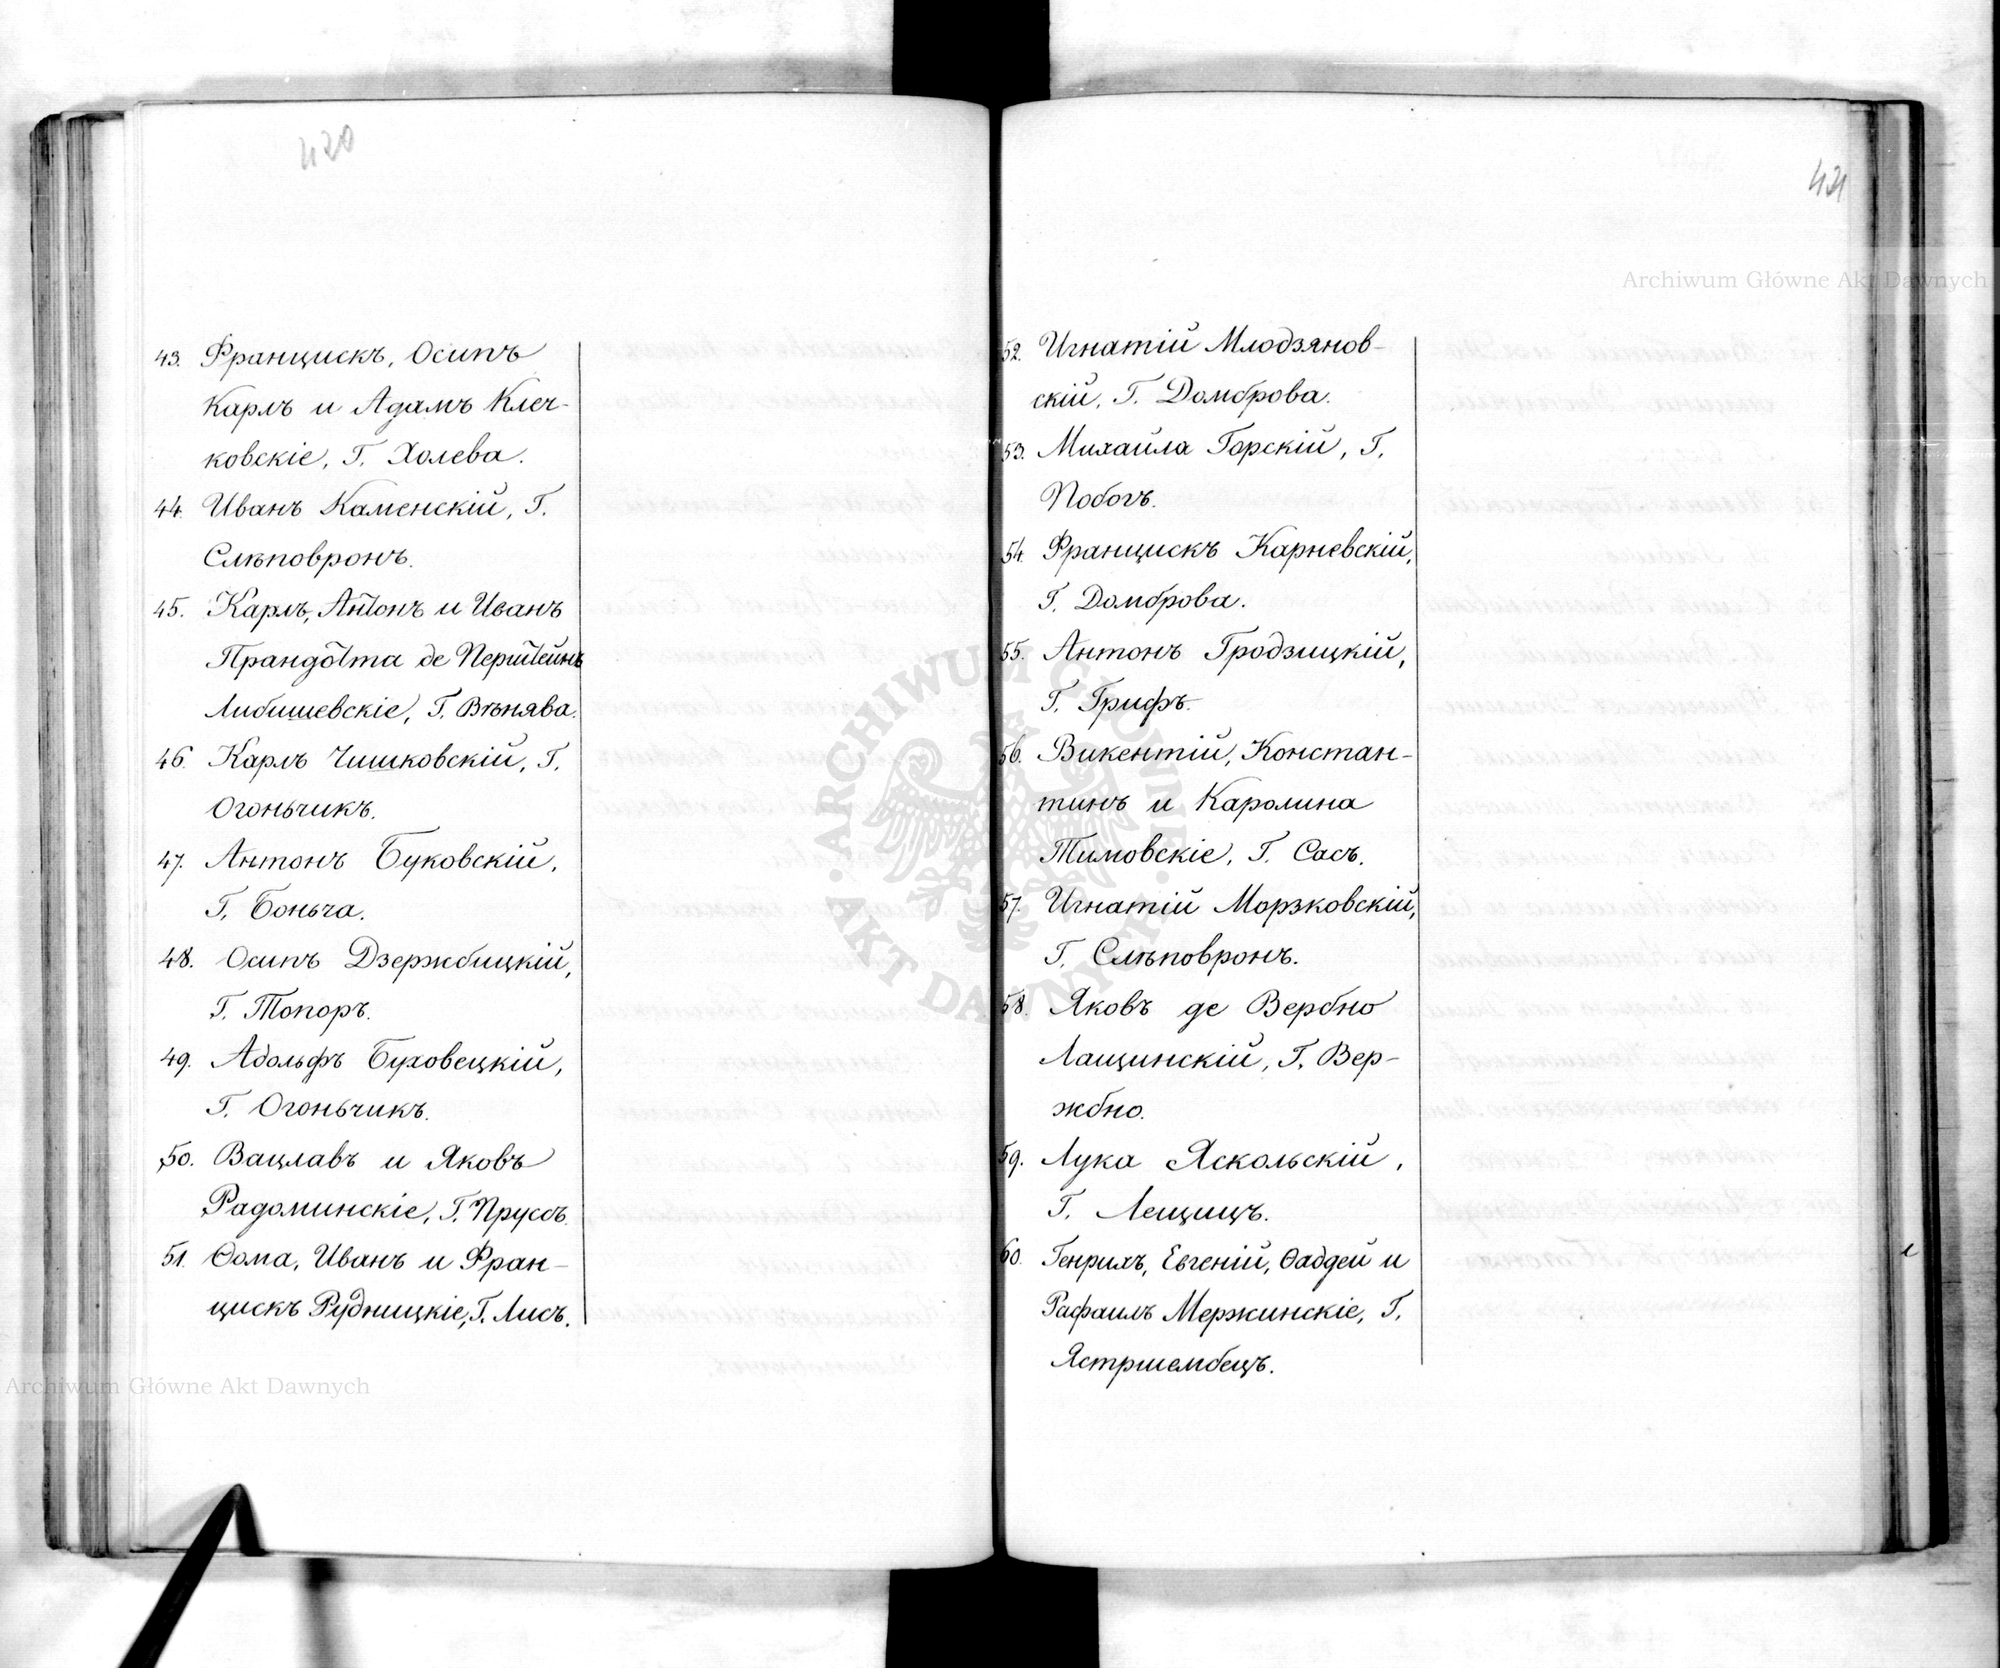 420
43. Францискъ, Осипъ
Карлъ и Адамъ Клеч-
ковскіе, Г. Холева.
44. Иванъ Каменскій, Г.
Слѣповронъ.
45. Карлъ, Антонъ и Иванъ
Прандота де Перштейнъ
Либишевскіе, Г. Вѣнява.
46. Карлъ Чишковскій, Г.
Огоньчикъ.
47. Антонъ Буковскій,
Г. Боньча.
48. Осипъ Дзержбицкій,
Г. Топоръ.
49. Адольфъ Буховецкій,
Г. Огоньчикъ.
50. Вацлавъ и Яковъ
Радоминскіе, Г. Пруссъ.
51. Ѳома, Иванъ и Фран-
цискъ Рудницкіе, Г. Лисъ.
Archiwum Główne Akt Dawnych
421
Archiwum Główne Akt Dawnych
52. Игнатій Млодзянов-
скій, Г. Домброва.
53. Михаила Горскій, Г.
Побогъ.
54. Францискъ Карневскій,
Г. Домброва.
55. Антонъ Гродзицкій,
Г. Грифъ.
56. Викентій, Констан-
тинъ и Каролина
Тимовскіе, Г. Сасъ.
57. Игнатій Морзковскій,
Г. Слѣповронъ.
58. Яковъ де Вербно
Лащинскій, Г. Вер-
жбно.
59. Лука Яскольскій,
Г. Лещицъ.
60. Генрихъ, Евгеній, Ѳаддей и
Рафаилъ Мержинскіе, Г.
Ястршембецъ.
ARCHIWUM GŁÓWNE AKT DAWNYCH